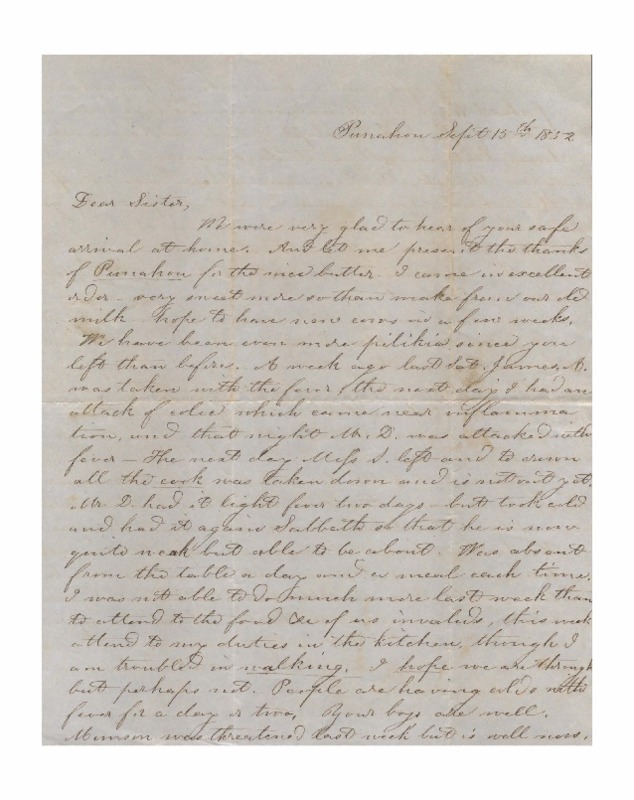 Punahou Sept 15th 1852
Dear Sister,
We were very glad to hear of your safe
arrival at home. And let me present the thanks
of Punahou for the nice butter. I came in excellent
order - very sweet more so than make from our old
milk hope to have new cows in a few weeks.
We have been even more pilikia since you
left than before. A week ago last Sat. James B.
was taken with the fever, the next day I had an
attack of colic which came near inflamma
tion, and that night Mr. D. was attacked with
fever - The next day Miss S. left and to crown
all the cook was taken down and is not out yet.
Mr. D. had it light fever two days - but took cold
and had it again Sabbath so that he is now
quite weak but able to be about. Was absent
from the table a day and a meal each time.
I was not able to do much more last week than
to attend to the food &c of us invalids, this week
attend to my duties in the kitchen, though I
am troubled in walking. I hope we are through
but perhaps not. People are having colds with
fever for a day or two, Your boys are well.
Munson was threatened last week but is well now.